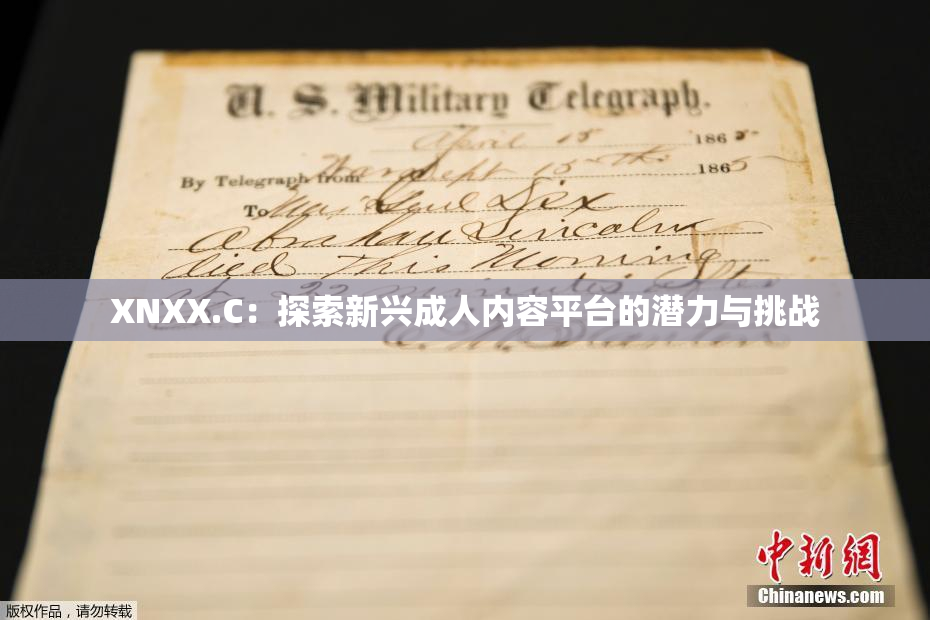 U. S. Military Telegraph.
April 15 1865
By Telegraph from War Dept 15th 1865
To Maj Genl Dix
Abraham Lincoln
died This Morning
at 22 minutes after
XNXX.C：探索新兴成人内容平台的潜力与挑战
中新网
Chinanews.com
版权作品，请勿转载